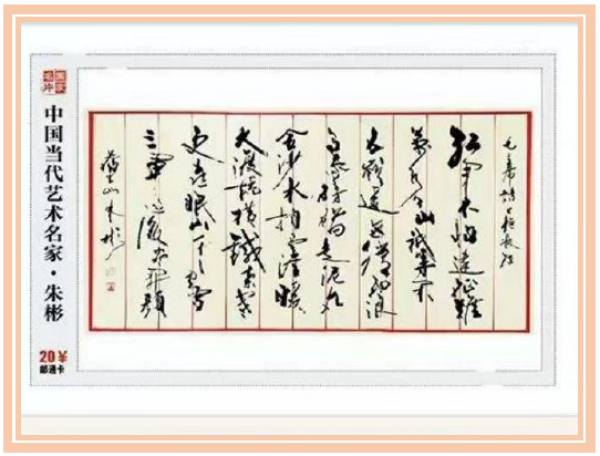 国家名片
中国当代艺术名家·朱彬
20¥
邮通卡
红军不怕远征难
万水千山只等闲
五岭逶迤腾细浪
乌蒙磅礴走泥丸
金沙水拍云崖暖
大渡桥横铁索寒
更喜岷山千里雪
三军过后尽开颜